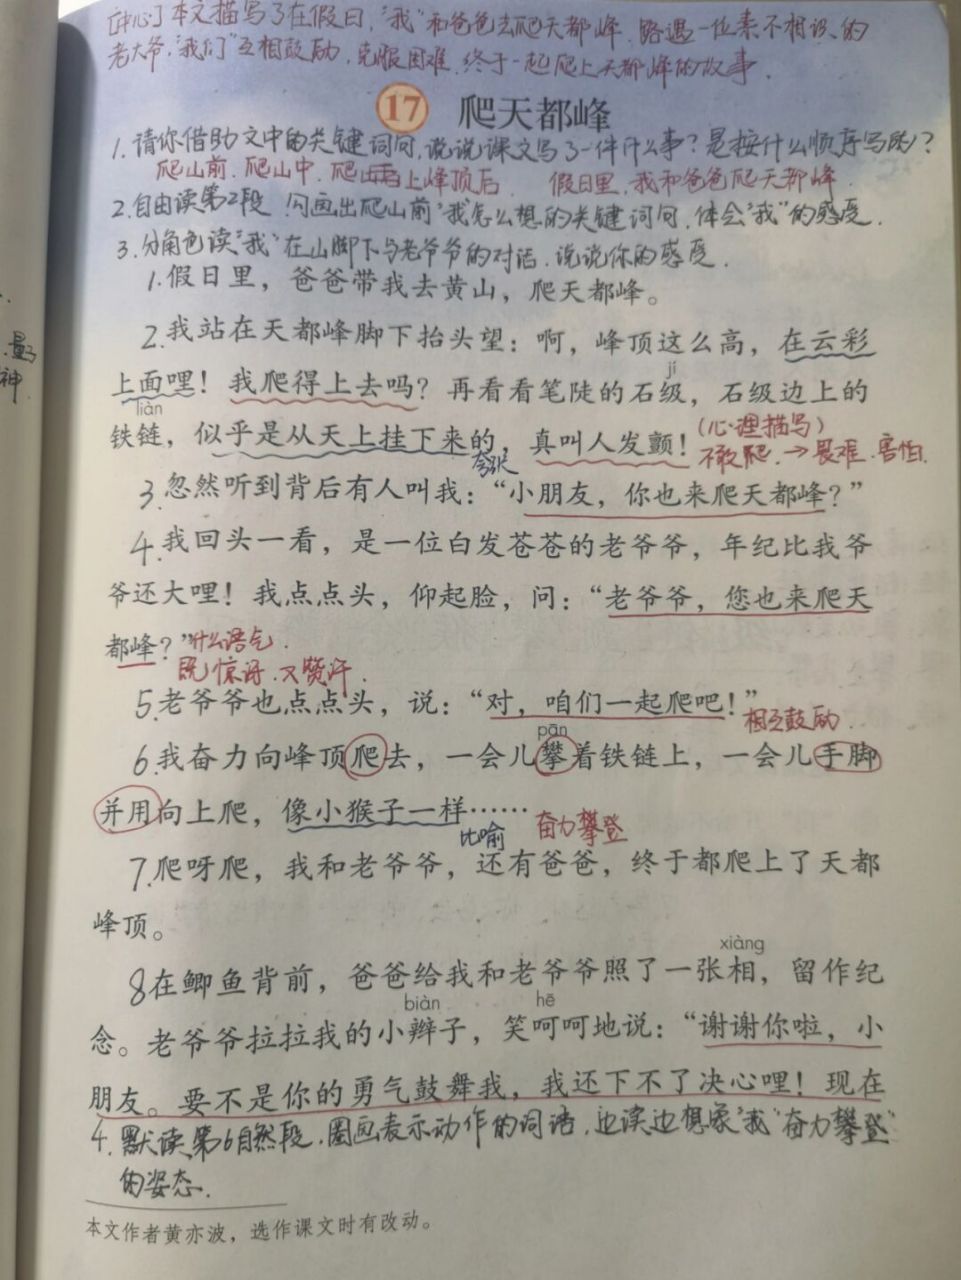 [中心]本文描写了在假日，“我”和爸爸去爬天都峰，路遇一位素不相识的
老大爷，“我们”互相鼓励，克服困难，终于一起爬上天都峰的故事.
17 爬天都峰
1. 请你借助文中的关键词句，说说课文写了一件什么事？是按什么顺序写的？
爬山前.爬山中.爬上峰顶后. 假日里，我和爸爸爬天都峰.
2.自由读第2段 勾画出爬山前“我”怎么想的关键词句，体会“我”的感受.
3.分角色读“我”在山脚下与老爷爷的对话.说说你的感受.
1.假日里，爸爸带我去黄山，爬天都峰。
2.我站在天都峰脚下抬头望：啊，峰顶这么高，在云彩
量
神
jí
上面哩！我爬得上去吗？再看看笔陡的石级，石级边上的
liàn
铁链，似乎是从天上挂下来的，真叫人发颤！(心理描写)
夸张 不敢爬.→畏难.害怕.
3.忽然听到背后有人叫我：“小朋友，你也来爬天都峰？”
4.我回头一看，是一位白发苍苍的老爷爷，年纪比我爷
爷还大哩！我点点头，仰起脸，问：“老爷爷，您也来爬天
都峰？”什么语气.
既惊讶.又赞许.
5.老爷爷也点点头，说：“对，咱们一起爬吧！”
相互鼓励.
pān
6.我奋力向峰顶爬去，一会儿攀着铁链上，一会儿手脚
并用向上爬，像小猴子一样……
比喻 奋力攀登
7.爬呀爬，我和老爷爷，还有爸爸，终于都爬上了天都
峰顶。
xiàng
8在鲫鱼背前，爸爸给我和老爷爷照了一张相，留作纪
biàn hē
念。老爷爷拉拉我的小辫子，笑呵呵地说：“谢谢你啦，小
朋友。要不是你的勇气鼓舞我，我还下不了决心哩！现在
4.默读第6自然段.圈画表示动作的词语.边读边想象“我”奋力攀登”
的姿态.
本文作者黄亦波，选作课文时有改动。